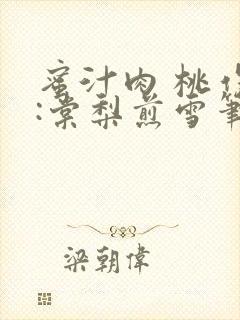 蜜汁肉桃作
:棠梨煎雪筆
梁朝偉